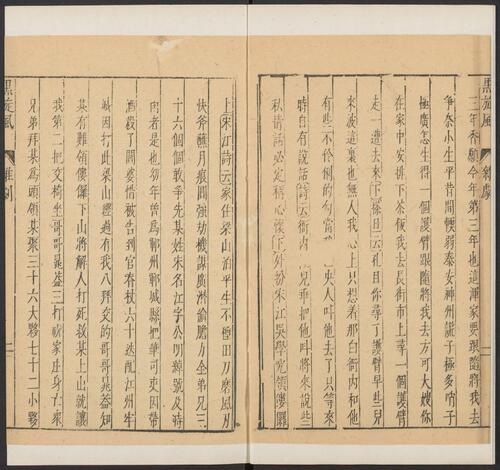 三年香願今年第三年也這渾家要跟隨將我去
爭奈小生平昔間愞弱泰安神州謊子極多哨子
極廣怎生得一個護臂跟隨將我去方可大嫂你
在家中安排下茶飯我去長街市上尋一個護臂
走一遭去來下搽旦云孔目你尋了護臂早些兒
來波這裏也無人我心上只想着那白衙内和他
有些不伶俐的勾當 央人叫他去了只等來
時自有說話詩云衙内 乖把他叫將來說些
私情話必定稱心懷下外扮宋江吳學究領僂儸
黑旋風 雜劇 二
上宋江詩云家住梁山泊平生不種田刀磨風刃
快斧蘸月痕圓強劫機謀廣潛偷膽力全弟兄三
十六個個敢爭先某姓宋名江字公明綽號及時
雨者是也幼年曾為鄆州鄆城縣把筆司吏因帶
酒殺了閻婆惜被告到官脊杖六十迭配江州牢
城因打此梁山經過有我八拜交的哥哥晁盖知
某有難領僂儸下山將解人打死救某上山就讓
我第二把交椅坐哥哥晁盖三打祝家庄身亡衆
兄弟拜某為頭領某聚三十六大夥七十二小夥
黑旋風 雜劇 二